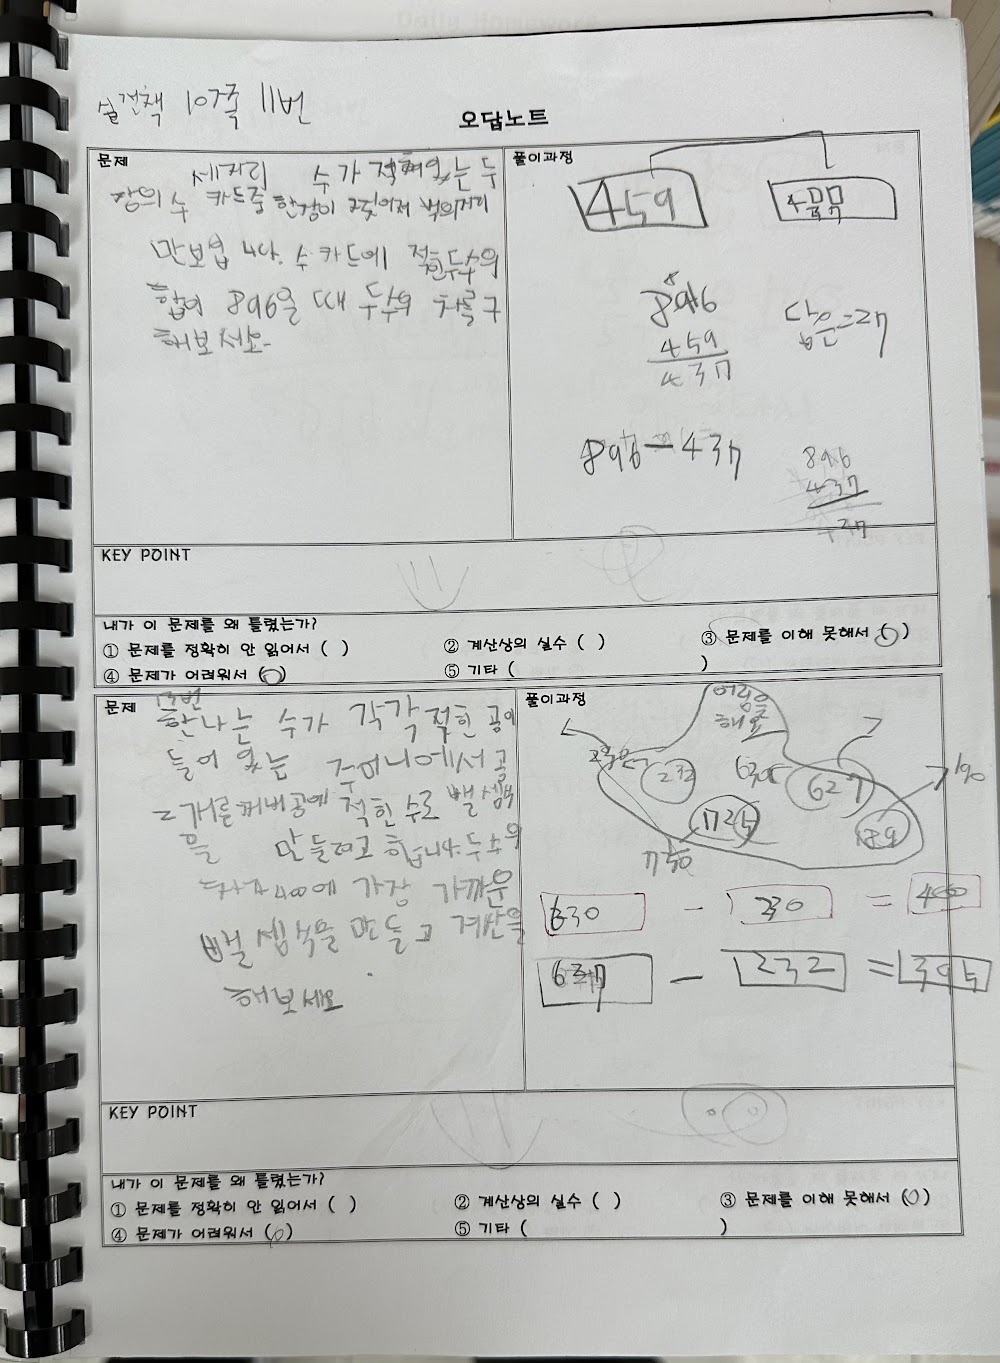 실전책 10쪽 11번
오답노트
문제
세자리 수가 적혀있는 두
장의 수 카드중 한장이 찢어져 백의자리
만보입니다. 수 카드에 적힌두수의
합이 896일 때 두수의 차를 구
해보세요.
풀이과정
459
4
37
896
459
437
답은=27
896-437
896
437
KEY POINT
내가 이 문제를 왜 틀렸는가?
① 문제를 정확히 안 읽어서 ( )
② 계산상의 실수 ( )
③ 문제를 이해 못해서 (○)
④ 문제가 어려워서 (○)
⑤ 기타 ( )
문제
13번
하나는 수가 각각 적힌 공이
들어 있는 주머니에서 공
2개를꺼내공에 적힌 수로 뺄셈식
을 만들려고 합니다. 두 수의
400에 가장 가까운
뺄셈식을 만들고 계산을
해보세요
풀이과정
어림을
해요
232
630
627
190
725
189
630 - 230 = 400
- 232 = 395
KEY POINT
내가 이 문제를 왜 틀렸는가?
① 문제를 정확히 안 읽어서 ( )
② 계산상의 실수 ( )
③ 문제를 이해 못해서 (○)
④ 문제가 어려워서 (○)
⑤ 기타 ( )